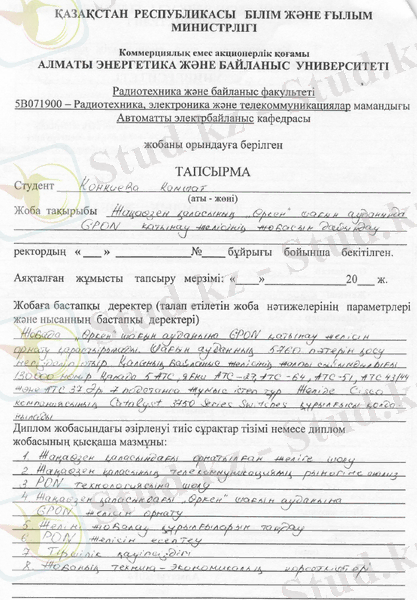 ҚАЗАҚСТАН РЕСПУБЛИКАСЫ БІЛІМ ЖӘНЕ ҒЫЛЫМ
МИНИСТРЛІГІ
Коммерциялық емес акционерлік қоғамы
АЛМАТЫ ЭНЕРГЕТИКА ЖӘНЕ БАЙЛАНЫС УНИВЕРСИТЕТІ
Радиотехника және байланыс факультеті
5В071900 – Радиотехника, электроника және телекоммуникациялар мамандығы
Автоматты электрбайланыс кафедрасы
жобаны орындауға берілген
ТАПСЫРМА
Студент
(аты - жөні)
Жоба тақырыбы Жаңаөзен қаласының „Өркен" шағын ауданында
GPON қатынау желісінің жобасын дайындау
ректордың «___» ________ №____ бұйрығы бойынша бекітілген.
Аяқталған жұмысты тапсыру мерзімі: «___» ________ 20___ ж.
Жобаға бастапқы деректер (талап етілетін жоба нәтижелерінің параметрлері
және нысанның бастапқы деректері)
Жобада „Өркен" шағын ауданына GPON қатынау желісін
орнату қарастырылады. Шағын ауданның 5760 пәтерін қосу
қаланың байланыс желісінің жалпы сыйымдылығы
номер Қалада 5 АТС, яғни АТС-64, АТС-51, АТС 43/44
және АТС 37 жұмыс істеп тұр Желіде Cisco
компаниясының Catalyst 3750 Series Switches құрылғысы
Диплом жобасындағы әзірленуі тиіс сұрақтар тізімі немесе диплом
жобасының қысқаша мазмұны:
1. Жаңаөзен қаласындағы орнатылған желіге шолу
2. Жаңаөзен қаласының телекоммуникациялық рыногіне шолу
3. PON технологиясына шолу
4. Жаңаөзен қаласындағы „Өркен" шағын ауданына
GPON желісін орнату
5. Желіні жобалау құрылғыларын таңдау
6. PON желісін есептеу
7. Тіршілік қауіпсіздігі
8. Жобаның технико-экономикалық көрсеткіштері
Stud.kz - Stud.kz